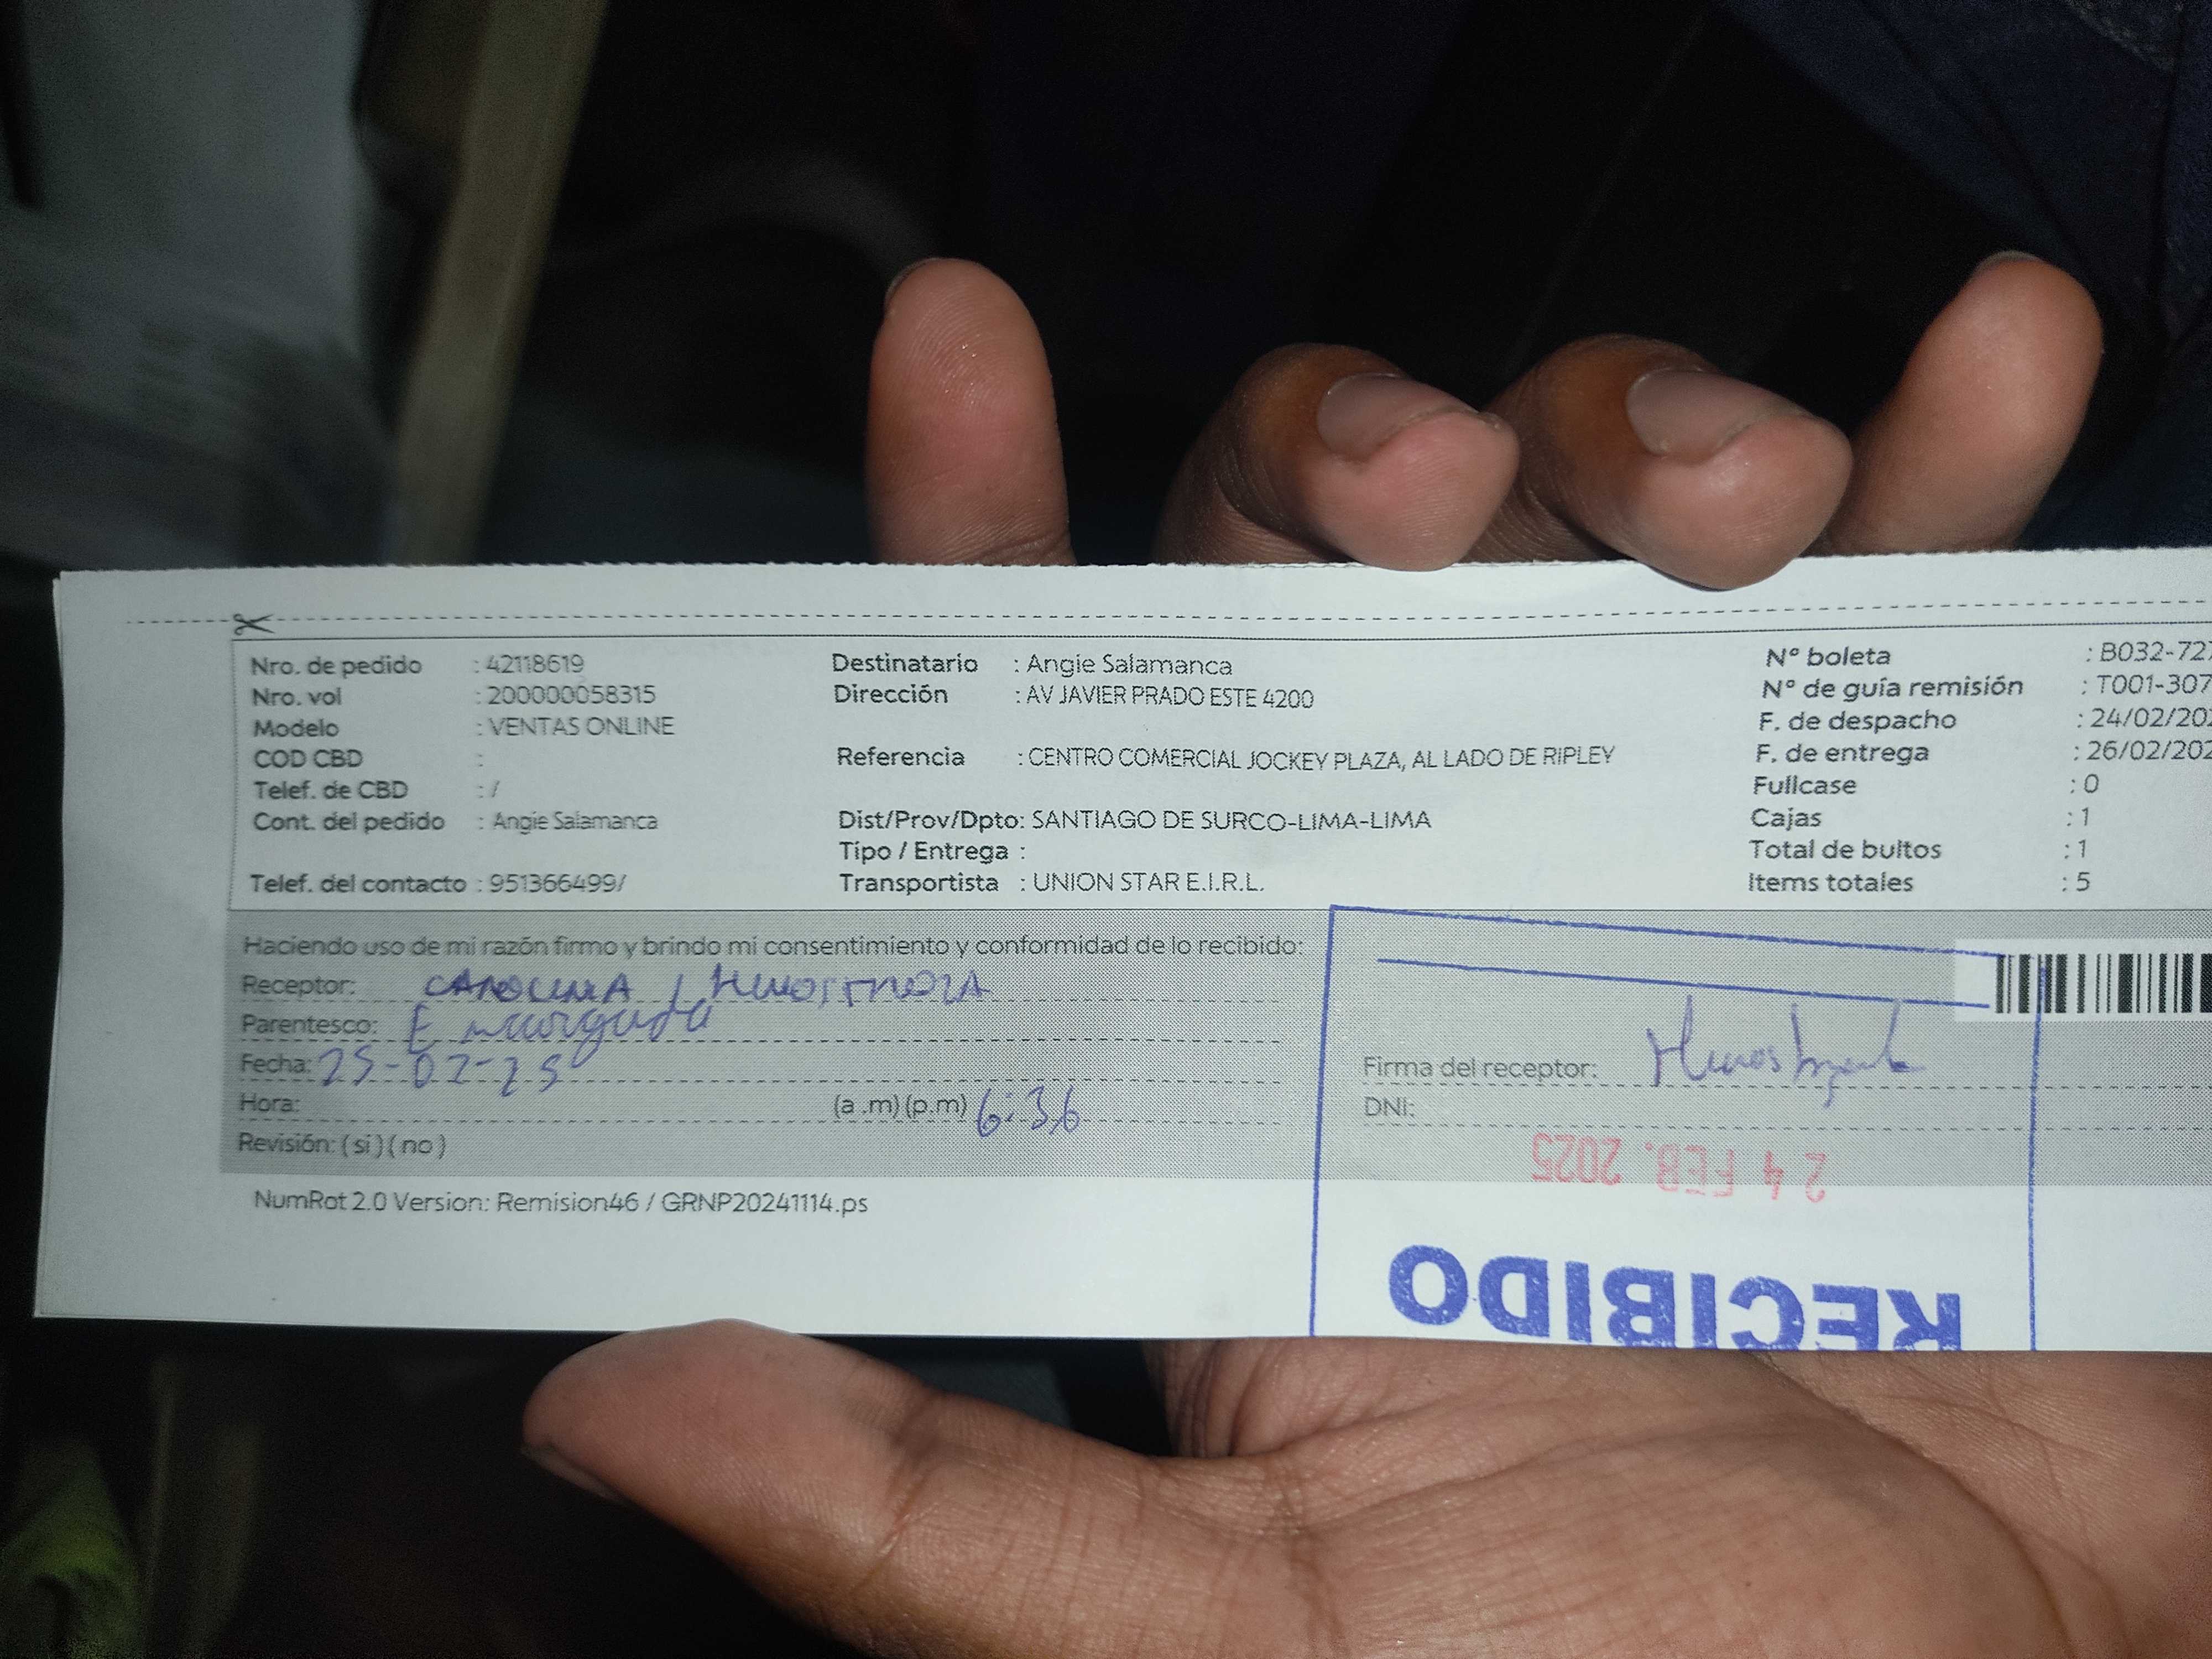 Nro. de pedido : 42118619
Nro. vol : 200000058315
Modelo : VENTAS ONLINE
COD CBD :
Telef. de CBD : /
Cont. del pedido : Angie Salamanca
Telef. del contacto : 951366499/
Destinatario : Angie Salamanca
Dirección : AV JAVIER PRADO ESTE 4200
Referencia : CENTRO COMERCIAL JOCKEY PLAZA, AL LADO DE RIPLEY
Dist/Prov/Dpto: SANTIAGO DE SURCO-LIMA-LIMA
Tipo / Entrega :
Transportista : UNION STAR E.I.R.L.
N° boleta : B032-727
N° de guía remisión : T001-307
F. de despacho : 24/02/202
F. de entrega : 26/02/202
Fullcase : 0
Cajas : 1
Total de bultos : 1
Items totales : 5
Haciendo uso de mi razón firmo y brindo mi consentimiento y conformidad de lo recibido:
Receptor: CAROLINA
Parentesco: Encargada
Fecha: 25-02-25
Hora: (a .m) (p.m) 6:36
Revisión: ( si ) ( no )
Firma del receptor:
DNI:
24 FEB. 2025
RECIBIDO
NumRot 2.0 Version: Remision46 / GRNP20241114.ps